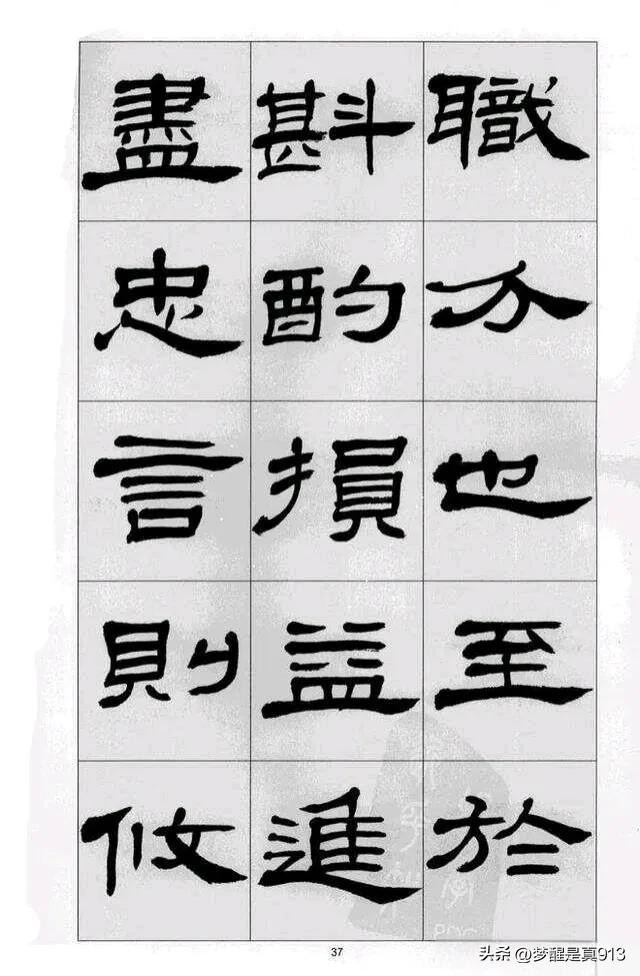 職分也至於
斟酌損益進
盡忠言則攸
37
头条 @梦醒是真913